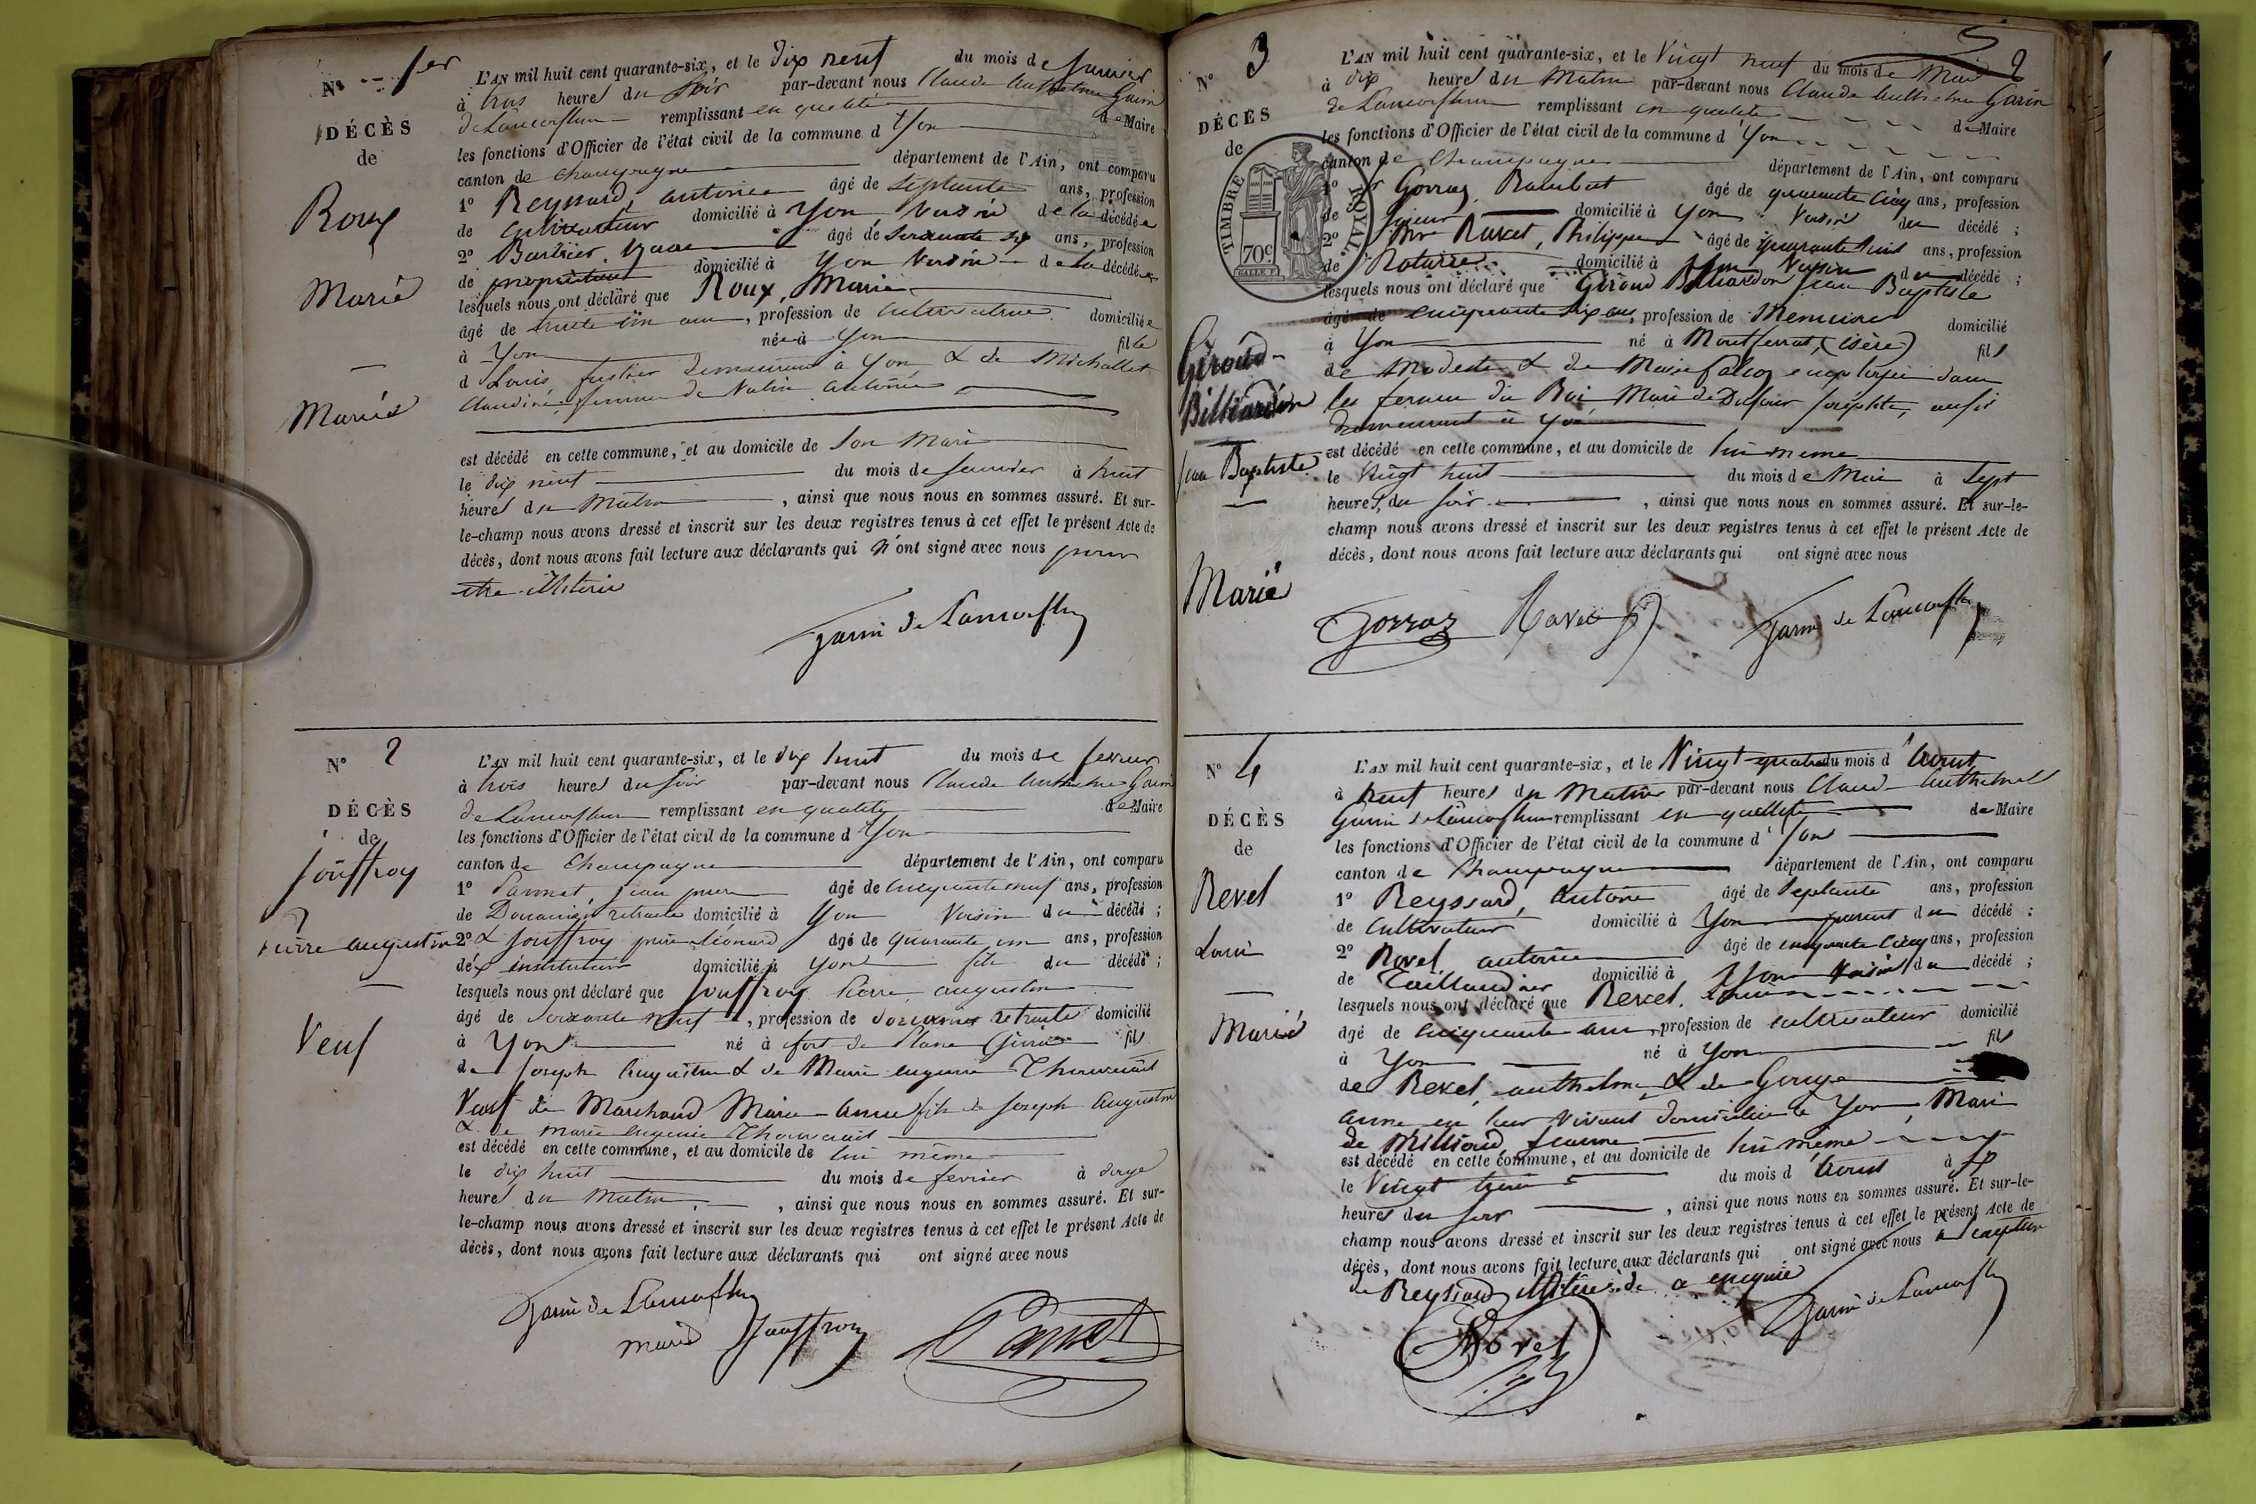 N° 1er
DÉCÈS
de
Roux
Marie
Mariée
L'AN mil huit cent quarante-six, et le dix neuf du mois de janvier
à trois heures du soir par-devant nous Claude Anthelme Garin
de Lamorflan remplissant en qualité de Maire
les fonctions d'Officier de l'état civil de la commune d'yon
canton de Champagne département de l'Ain, ont comparu
1° Reyssard, antoine âgé de septante ans, profession
de cultivateur domicilié à Yon, voisin de la décédée
2° Barbier, âgé de soixante six ans, profession
de propriétaire domicilié à Yon voisin de la décédée
lesquels nous ont déclaré que Roux, Marie
âgé de trente un ans, profession de cultivatrice domiciliée
à Yon née à Yon fille
d Louis, demeurant à Yon & de Michallet
Claudine, femme de antoine
est décédé en cette commune, et au domicile de son mari
le dix neuf du mois de janvier à huit
heures du matin, ainsi que nous nous en sommes assuré. Et sur-
le-champ nous avons dressé et inscrit sur les deux registres tenus à cet effet le présent Acte de
décès, dont nous avons fait lecture aux déclarants qui n'ont signé avec nous pour
être
Garin de Lamorflan
N° 2
DÉCÈS
de
Jouffroy
Pierre augustin
Veuf
L'AN mil huit cent quarante-six, et le dix huit du mois de fevrier
à trois heures du soir par-devant nous Claude Anthelme Garin
de Lamorflan remplissant en qualité de Maire
les fonctions d'Officier de l'état civil de la commune d'Yon
canton de Champagne département de l'Ain, ont comparu
1° Parmet, jean pierre âgé de cinquante neuf ans, profession
de Douanier retraité domicilié à Yon Voisin du décédé ;
2° & Jouffroy pierre Léonard âgé de quarante un ans, profession
d'ex instituteur domicilié à Yon fils du décédé ;
lesquels nous ont déclaré que Jouffroy Pierre augustin
âgé de soixante neuf, profession de douanier retraité domicilié
à Yon né à fort de Plane fils
de Joseph Augustin & de Marie eugenie Thouverait
Veuf de Marchand Marie-anne fils de Joseph Augustin
& de marie eugenie Thouverait
est décédé en cette commune, et au domicile de lui même
le dix huit du mois de fevrier à onze
heures du matin, ainsi que nous nous en sommes assuré. Et sur-
le-champ nous avons dressé et inscrit sur les deux registres tenus à cet effet le présent Acte de
décès, dont nous avons fait lecture aux déclarants qui ont signé avec nous
Garin de Lamorflan
maire Jouffroy Parmet
2
N° 3
DÉCÈS
de
TIMBRE ROYAL
70c
Giroud-
Billiardon
Jean Baptiste
Marié
L'AN mil huit cent quarante-six, et le Vingt neuf du mois de Mai
à dix heures du Matin par-devant nous Claude Anthelme Garin
de Lamorflan remplissant en qualité de Maire
les fonctions d'Officier de l'état civil de la commune d'Yon
canton de Champagne département de l'Ain, ont comparu
1° Gorraz, Rambert âgé de quarante cinq ans, profession
de domicilié à Yon Voisin du décédé ;
2° Ravet, Philippe âgé de quarante huit ans, profession
de Notaire domicilié à Yon Voisin du décédé ;
lesquels nous ont déclaré que Giroud Billiardon Jean Baptiste
âgé de cinquante six ans, profession de Menuisier domicilié
à Yon né à Montferrat, (isère) fils
de Modeste & de Marie Falcoz employée dans
les fermes du Roi Mari de Dufour Josephte, aussi
demeurant à Yon
est décédé en cette commune, et au domicile de lui même
le Vingt huit du mois de Mai à Sept
heures du soir, ainsi que nous nous en sommes assuré. Et sur-le-
champ nous avons dressé et inscrit sur les deux registres tenus à cet effet le présent Acte de
décès, dont nous avons fait lecture aux déclarants qui ont signé avec nous
Gorraz Ravet Garin de Lamorflan
N° 4
DÉCÈS
de
Revel
Louis
Marié
L'AN mil huit cent quarante-six, et le Vingt quatre du mois d'Aout
à neuf heures du Matin par-devant nous Claude Anthelme
Garin de Lamorflan remplissant en qualité de Maire
les fonctions d'Officier de l'état civil de la commune d'Yon
canton de Champagne département de l'Ain, ont comparu
1° Reyssard, antoine âgé de septante ans, profession
de cultivateur domicilié à Yon parent du décédé ;
2° Rovel antoine âgé de cinquante cinq ans, profession
de Taillandier domicilié à Yon Voisin du décédé ;
lesquels nous ont déclaré que Revel, Louis
âgé de cinquante ans, profession de cultivateur domicilié
à Yon né à Yon fils
de Revel, anthelme & de Gouge
anne en leur vivant domiciliés à Yon, Mari
de Milliand, jeanne
est décédé en cette commune, et au domicile de lui même
le Vingt trois du mois d'Aout à six
heures du soir, ainsi que nous nous en sommes assuré. Et sur-le-
champ nous avons dressé et inscrit sur les deux registres tenus à cet effet le présent Acte de
décès, dont nous avons fait lecture aux déclarants qui ont signé avec nous
de Reyssard de ce enquis
Rovel Garin de Lamorflan